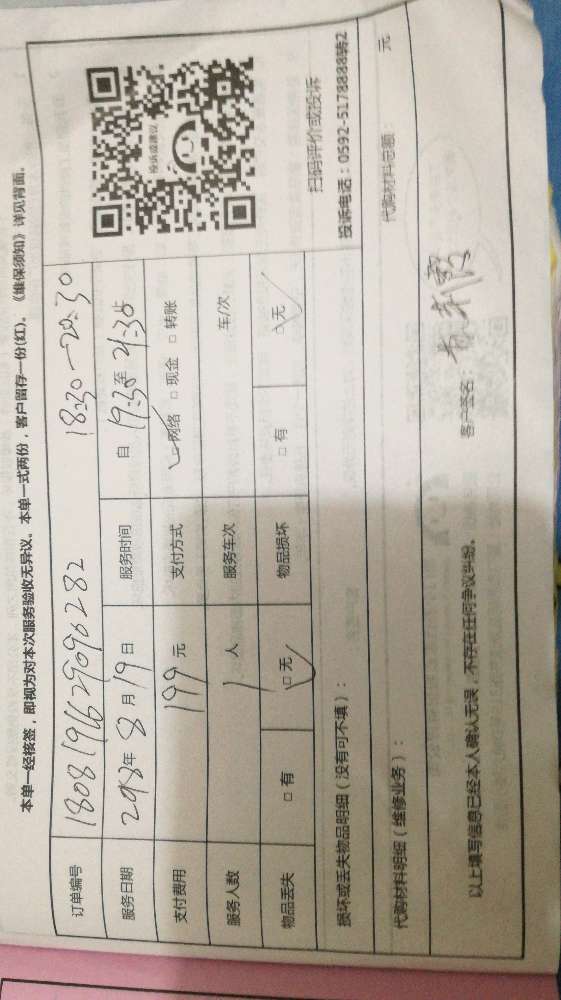 本单一经核签，即视为对本次服务验收无异议。本单一式两份，客户留存一份(红)。《维保须知》详见背面。
订单编号 180819662909 0282 18:30—20:30
服务日期 2018年 8 月 19 日 服务时间 自 19:30 至 21:30
支付费用 199 元 支付方式 ☑网络 □现金 □转账
服务人数 1 人 服务车次 车/次
物品丢失 □有 ☑无 物品损坏 □有 ☑无
投诉或建议
扫码评价或投诉
投诉电话：0592-5178888转2
损坏或丢失物品明细（没有可不填）：
代购材料明细（维修业务）： 代购材料总额： 元
以上填写信息已经本人确认无误，不存在任何争议纠纷。 客户签名：